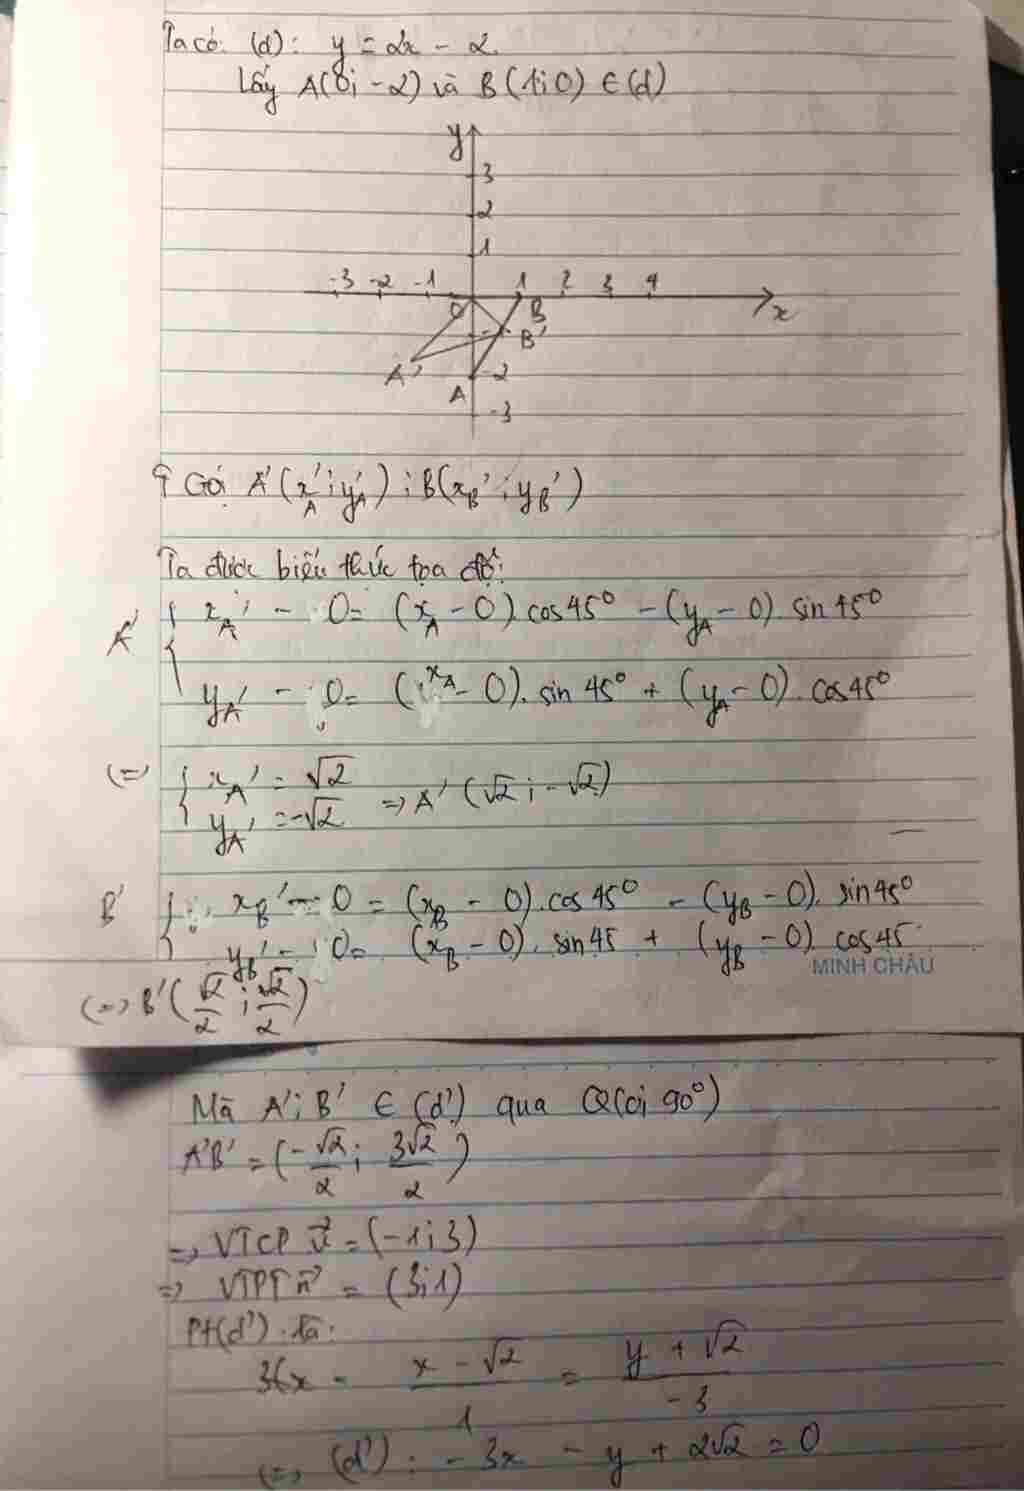 Ta có: (d): y = 2x - 2.
Lấy A(0; -2) và B(1;0) ∈ (d)
y
3
2
1
-3 -2 -1 1 2 3 4
O B x
B'
A' -2
A
-3
Gọi A'(x'A; y'A); B(xB'; yB')
Ta được biểu thức tọa độ:
A' { xA' - 0 = (xA - 0).cos45° - (yA - 0).sin45°
yA' - 0 = (xA - 0).sin45° + (yA - 0).cos45°
(=) { xA' = √2
yA' = -√2 => A'(√2; -√2)
B' { xB' - 0 = (xB - 0).cos45° - (yB - 0).sin45°
yB' - 0 = (xB - 0).sin45 + (yB - 0).cos45
MINH CHÂU
(=) B'(√2/2; √2/2)
Mà A'; B' ∈ (d') qua Q(O; 90°)
A'B' = (-√2/2; 3√2/2)
=> VTCP u⃗ = (-1; 3)
=> VTPT n⃗ = (3; 1)
Pt(d') là:
3(x - (x - √2)/1 = (y + √2)/-3
(=) (d'): -3x - y + 2√2 = 0